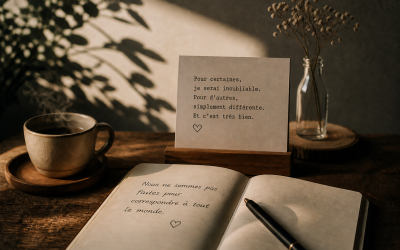 Pour certaines,
je serai inoubliable.
Pour d'autres,
simplement différente.
Et c'est très bien.
Nous ne sommes pas
faites pour
correspondre à tout
le monde.